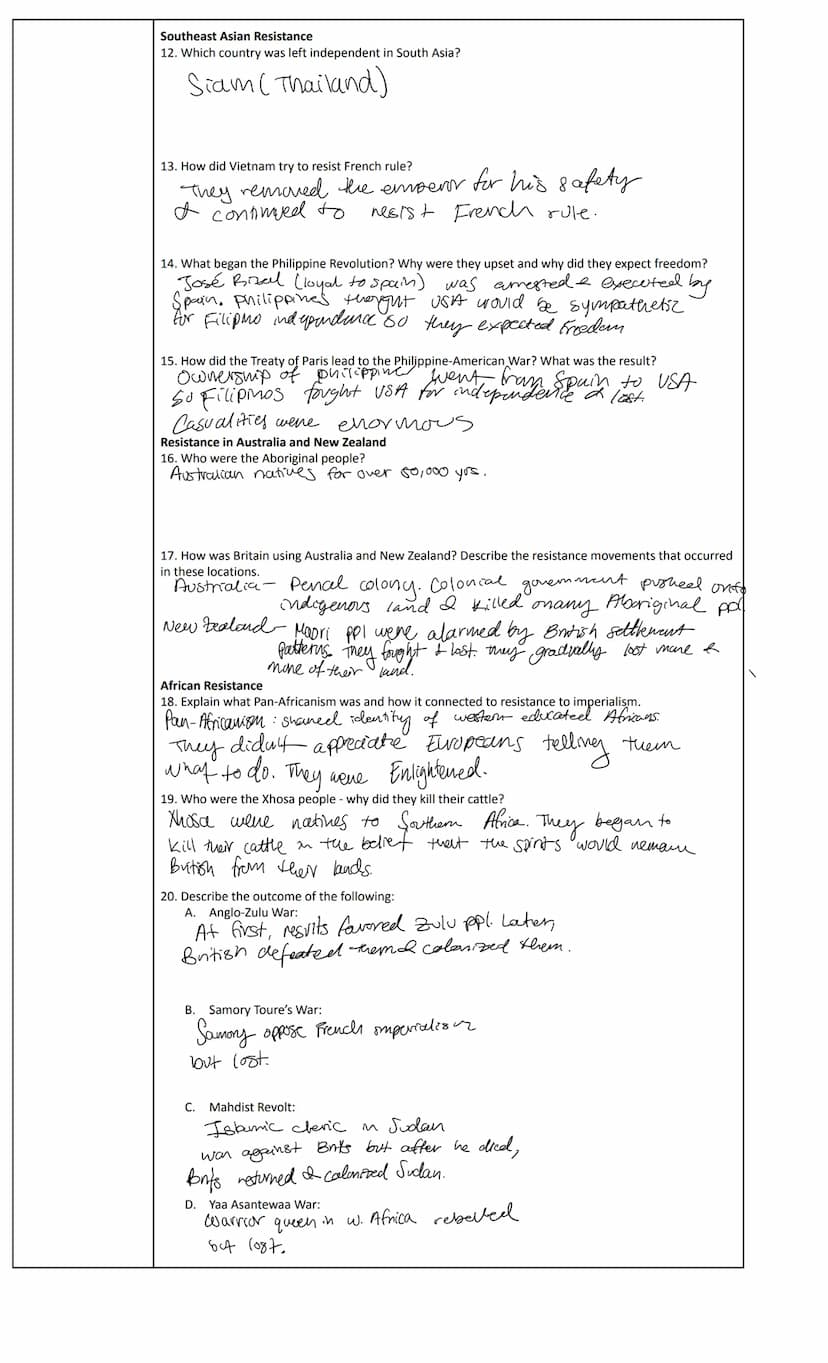 Southeast Asian Resistance
12. Which country was left independent in South Asia?
Siam (Thailand)
13. How did Vietnam try to resist French rule?
They removed the emperor for his safety
& continued to resist French rule.
14. What began the Philippine Revolution? Why were they upset and why did they expect freedom?
José Rizal (loyal to Spain) was arrested & executed by
Spain. Philippines thought USA would be sympathetic
for Filipino independence so they expected freedom
15. How did the Treaty of Paris lead to the Philippine-American War? What was the result?
Ownership of Philippine went from Spain to USA
So Filipinos fought USA for independence & lost.
Casualities were enormous
Resistance in Australia and New Zealand
16. Who were the Aboriginal people?
Australian natives for over 50,000 yrs.
17. How was Britain using Australia and New Zealand? Describe the resistance movements that occurred
in these locations.
Australia - Penal colony. Colonial government pushed onto
indigenous land & killed many Aboriginal ppl
New Zealand - Maori ppl were alarmed by British settlement
patterns. They fought & lost. They gradually lost more &
more of their land.
African Resistance
18. Explain what Pan-Africanism was and how it connected to resistance to imperialism.
Pan-Africanism: shared identity of western educated Africans.
They didn't appreciate Europeans telling them
what to do. They were Enlightened.
19. Who were the Xhosa people - why did they kill their cattle?
Xhosa were natives to Southern Africa. They began to
kill their cattle in the belief that the spirits would remove
British from their lands.
20. Describe the outcome of the following:
A. Anglo-Zulu War:
At first, results favored Zulu ppl. Later,
British defeated them & colonized them.
B. Samory Toure's War:
Samory oppose French imperialism
but lost.
C. Mahdist Revolt:
Islamic cleric in Sudan
won against Brits but after he died,
Brits returned & colonized Sudan.
D. Yaa Asantewaa War:
Warrior queen in W. Africa rebelled
but lost.